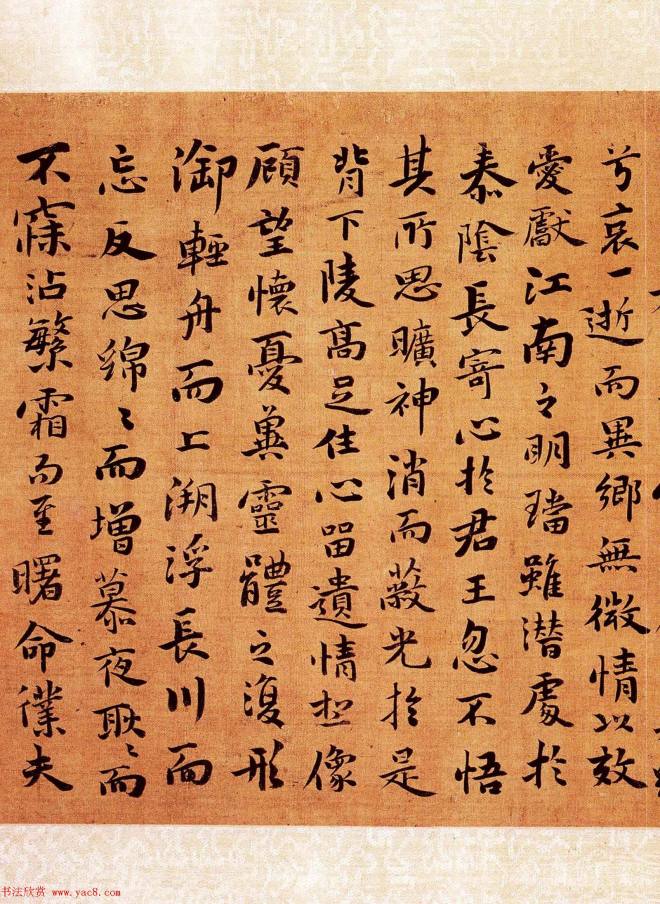 兮哀一逝而異鄉無微情以效
愛獻江南之明璫雖潛處於
泰陰長寄心於君王忽不悟
其所思曠神消而蔽光於是
背下陵高足住心畱遺情想像
顧望懷憂冀靈體之復形
御輕舟而上溯浮長川而
忘反思綿々而增慕夜耿々而
不寐沾繁霜而至曙命僕夫
书法欣赏 www.yac8.com